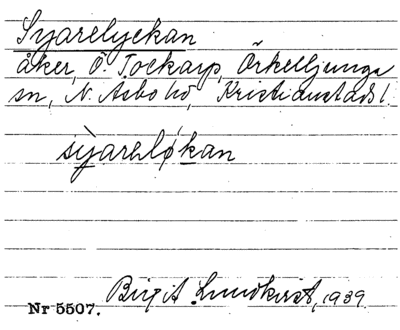 Syarelyckan
åker, Ö. Tockarp, Örkelljunga
sn, N. Åsbo hd, Kristianstads l.
sỳareløkan
Birgit Lundkvist, 1939
Nr 5507.